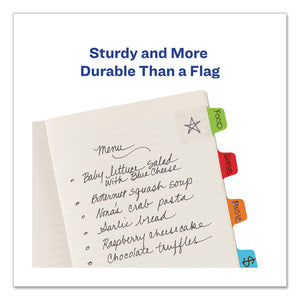 Sturdy and More
Durable Than a Flag
FOOD
Menu
• Baby lettuce Salad
with Blue Cheese
• Butternut squash soup
• Nona's crab pasta
• Garlic bread
• Raspberry cheesecake
• Chocolate truffles
$